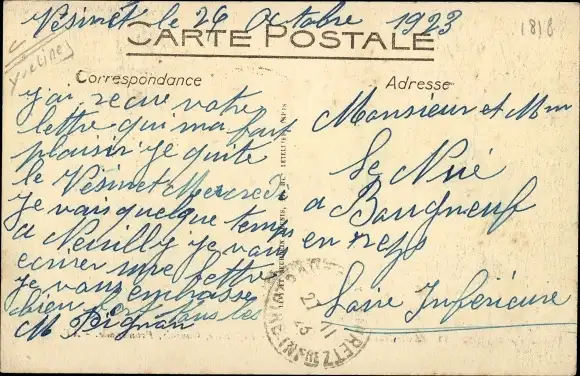 Vésinet le 26 Octobre 1923
1818
Yvelines
CARTE POSTALE
Correspondance
Adresse
j'ai recue votre
lettre qui ma fait
plaisir je quite
le Vésinet Mercredi
Je vais quelque temps
a Neuilly je vais
ecrire une lettre
Je vous embrasse
bien fort tous les
M Pignan
Monsieur et Mm
Le Nué
a Bourgneuf
en retz
Loire Inférieure
RETZ